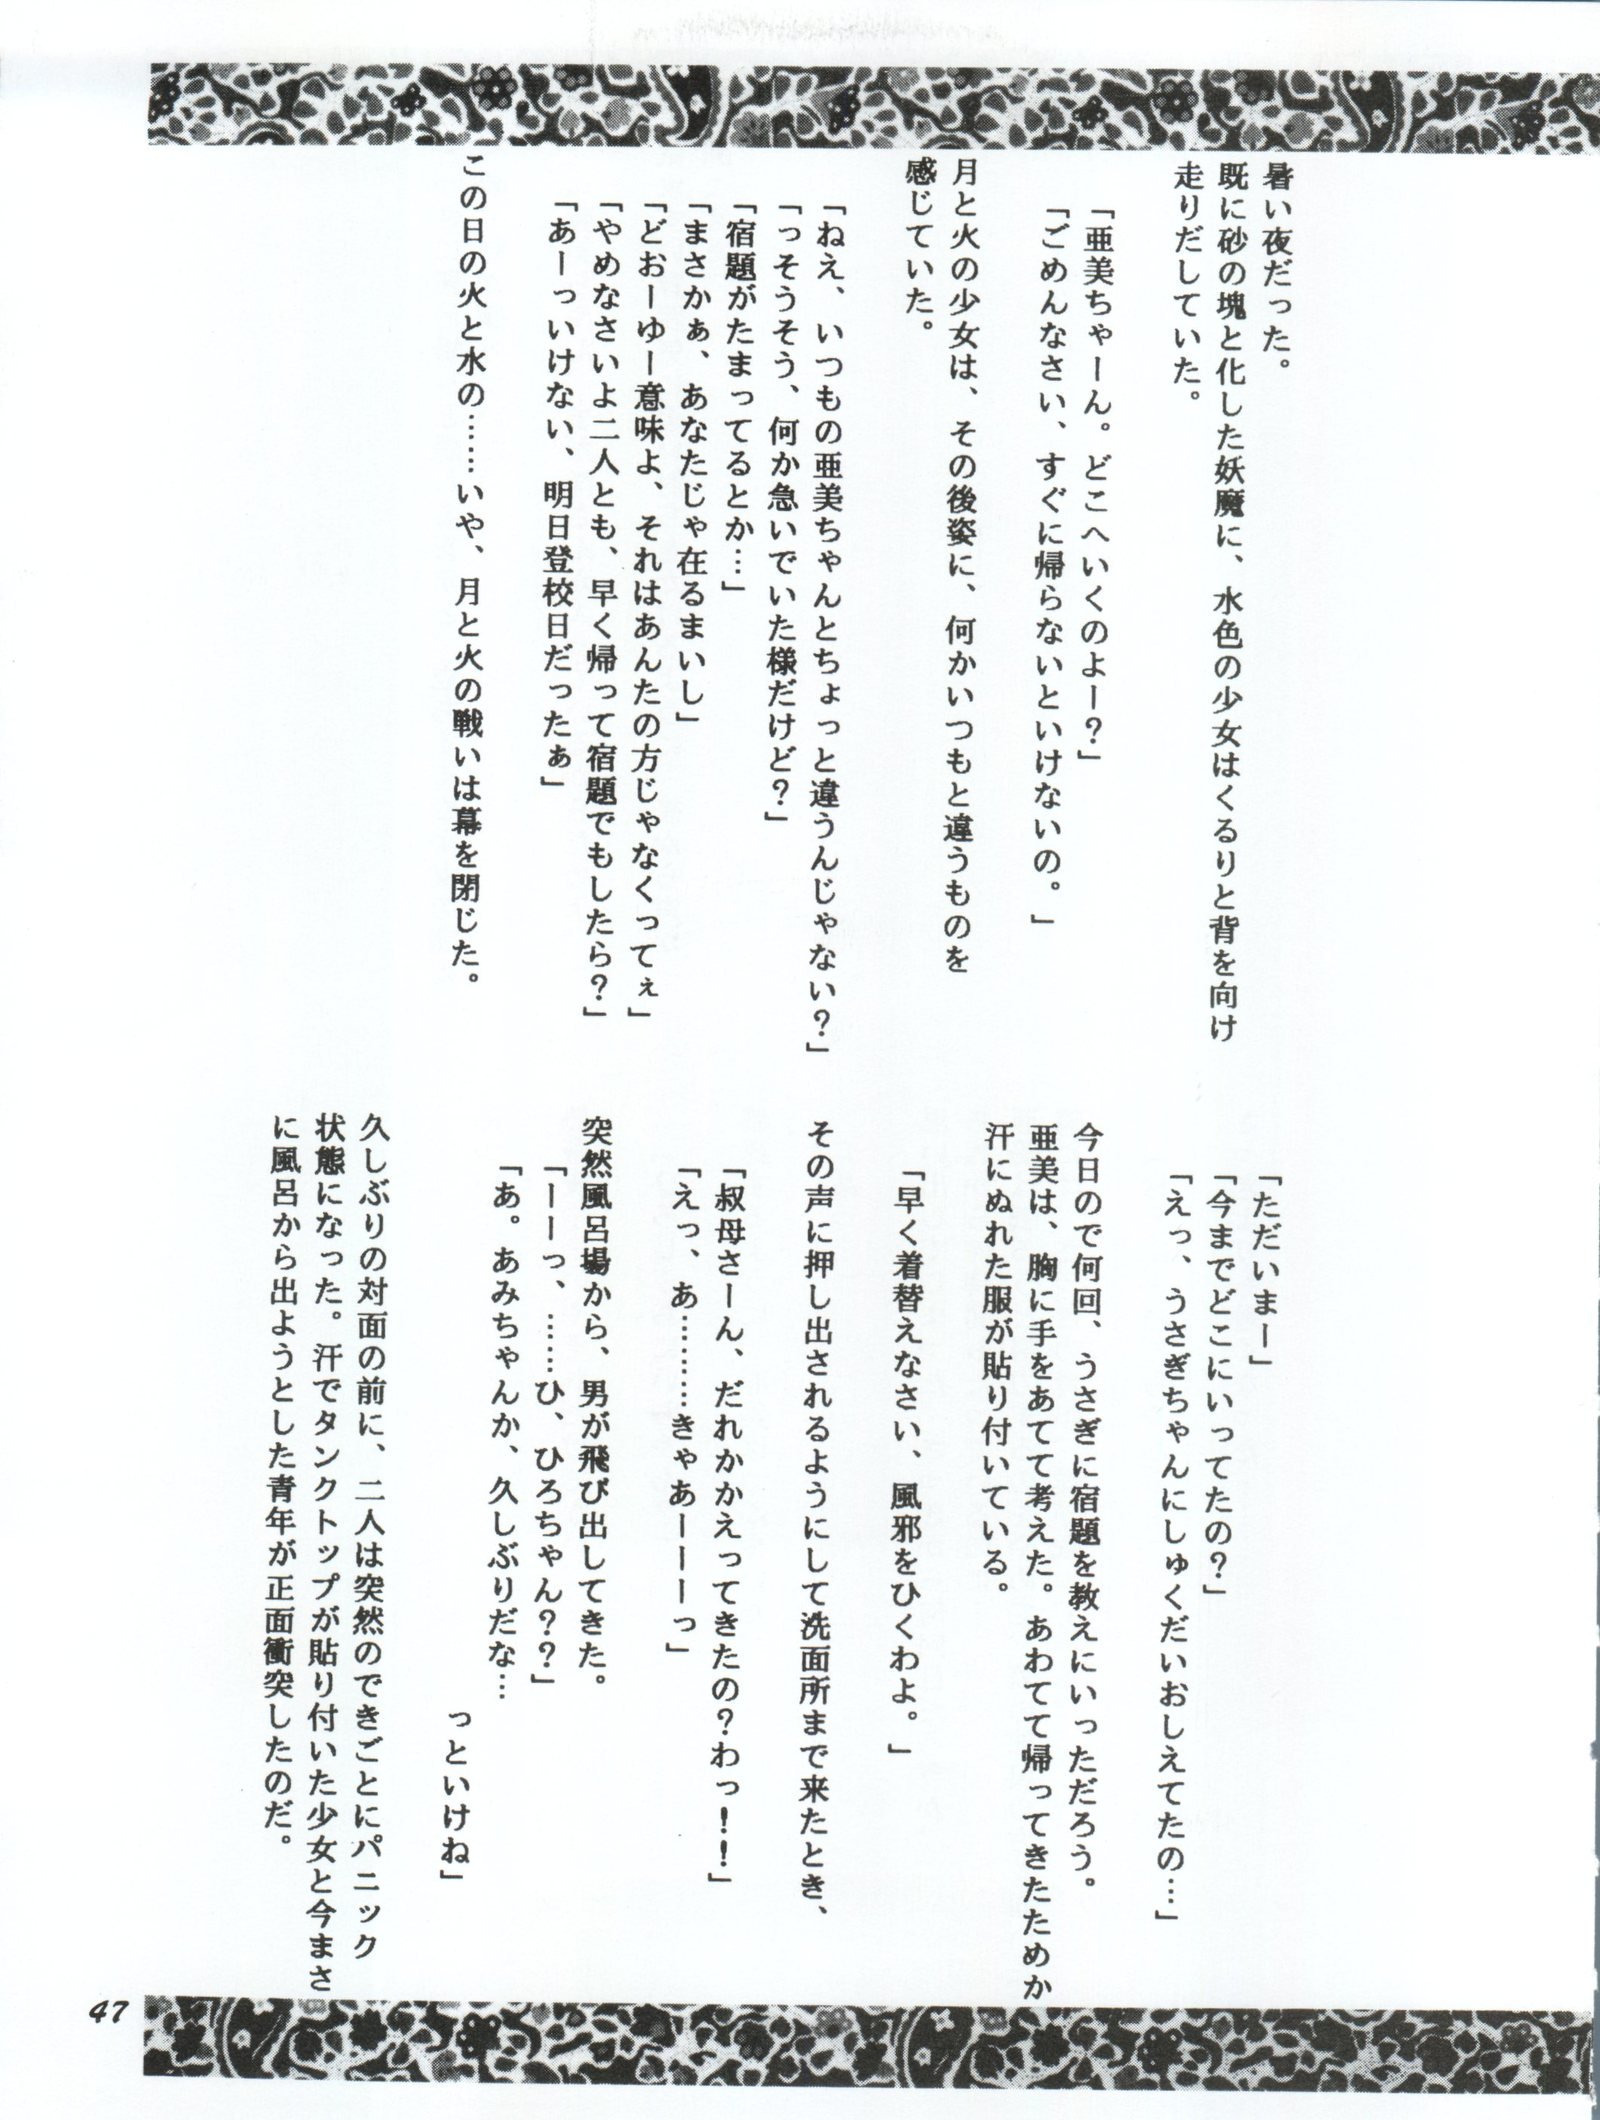 暑い夜だった。
既に砂の塊と化した妖魔に、水色の少女はくるりと背を向け
走りだしていた。
「亜美ちゃーん。どこへいくのよー？」
「ごめんなさい、すぐに帰らないといけないの。」
月と火の少女は、その後姿に、何かいつもと違うものを
感じていた。
「ねえ、いつもの亜美ちゃんとちょっと違うんじゃない？」
「っそうそう、何か急いでいた様だけど？」
「宿題がたまってるとか…」
「まさかぁ、あなたじゃ在るまいし」
「どおーゆー意味よ、それはあんたの方じゃなくってぇ」
「やめなさいよ二人とも、早く帰って宿題でもしたら？」
「あーっいけない、明日登校日だったぁ」
この日の火と水の……いや、月と火の戦いは幕を閉じた。
「ただいまー」
「今までどこにいってたの？」
「えっ、うさぎちゃんにしゅくだいおしえてたの…」
今日ので何回、うさぎに宿題を教えにいっただろう。
亜美は、胸に手をあてて考えた。あわてて帰ってきたためか
汗にぬれた服が貼り付いている。
「早く着替えなさい、風邪をひくわよ。」
その声に押し出されるようにして洗面所まで来たとき、
「叔母さーん、だれかかえってきたの？わっ！！」
「えっ、あ………きゃあーーーっ」
突然風呂場から、男が飛び出してきた。
「ーーっ、……ひ、ひろちゃん？？」
「あ。あみちゃんか、久しぶりだな…
っといけね」
久しぶりの対面の前に、二人は突然のできごとにパニック
状態になった。汗でタンクトップが貼り付いた少女と今まさ
に風呂から出ようとした青年が正面衝突したのだ。
47